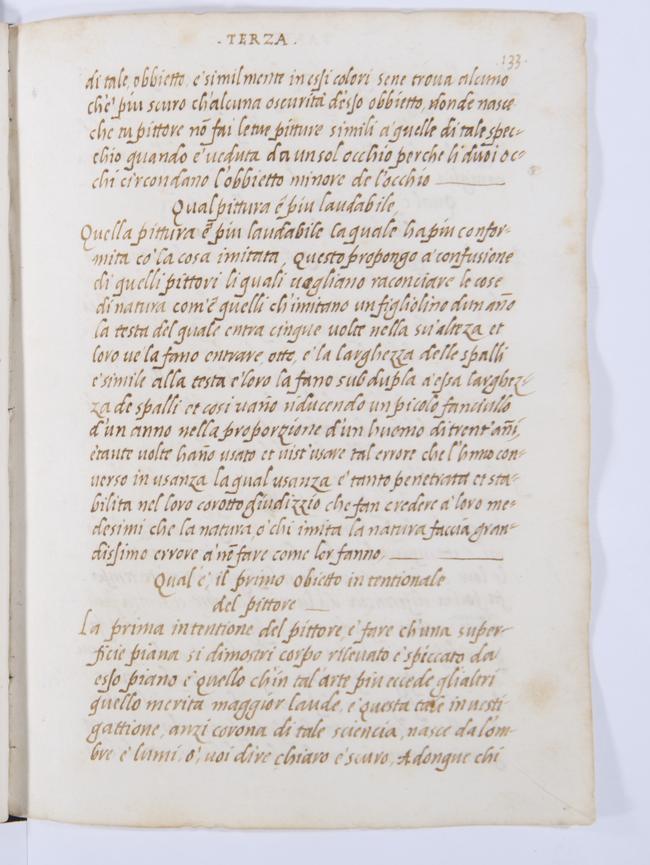 . TERZA .
133.
di tale, obbietto, e similmente in essi colori sene trova alcuno
ch'e' piu scuro ch'alcuna oscurità d'esso obbietto, donde nasce
che tu pittore nõ fai le tue pitture simili a' quelle di tale spec-
chio quando e' veduta da un sol occhio perche li duoi oc-
chi circondano l'obbietto minore de l'occhio
Qual pittura é piu laudabile,
Quella pittura é piu laudabile laquale ha piu confor-
mita cò la cosa imitata, questo propongo a' confusione
di quelli pittori li quali vogliano raconciare le cose
di natura com'é quelli ch'imitano un figliolino d'un año
la testa del quale entra cinque volte nella su'alteza et
loro ve la fano entrare, otto, e' la larghezza delle spalli
e' simile alla testa e' loro la fano sub dupla a' essa larghez-
za de spalli et cosi vaño riducendo un picolo fanciullo
d'un anno nella proporzione d'un huomo di trent'añi,
e tante volte haño usato et vist'usare tal errore che l'hãno con-
verso in usanza la qual usanza e' tanto penetrata et sta-
bilita nel loro corotto giudizzio che fan credere a' loro me-
desimi che la natura, o' chi imita la natura faccia gran-
dissimo errore a' nõ fare come lor fanno,
Qual e', il primo obietto intentionale
del pittore
La prima intentione del pittore, e' fare ch'una super-
ficie piana si dimostri corpo rilevato e' spiccato da
esso piano e' quello ch'in tal'arte piu eccede gli altri
quello merita maggior laude, e' questa tale investi
gattione, anzi corona di tale sciencia, nasce da l'om-
bre e' lumi, o', voi dire chiaro e' scuro, Adonque chi